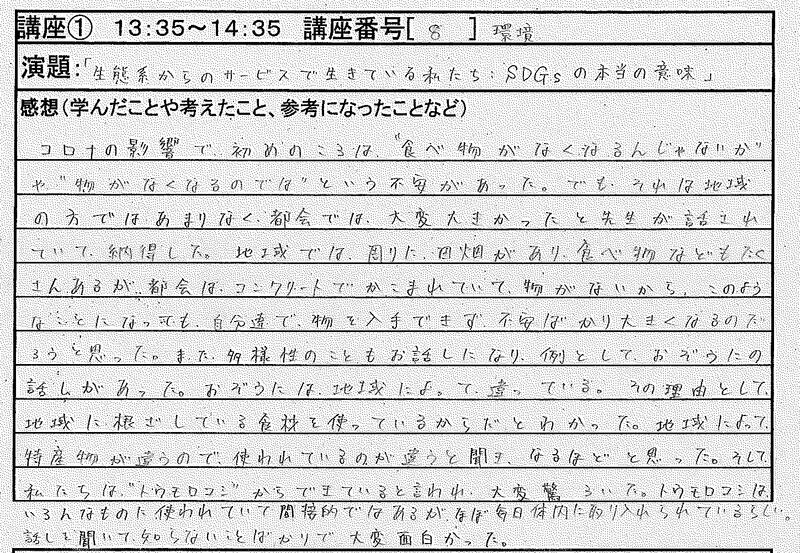 講座① 13:35～14:35 講座番号[ 8 ] 環境
演題:「生態系からのサービスで生きている私たち:SDGsの本当の意味」
感想(学んだことや考えたこと、参考になったことなど)
コロナの影響で、初めのころは、"食べ物がなくなるんじゃないか"
や"物がなくなるのでは"という不安があった。でも、それは地域
の方ではあまりなく、都会では、大変大きかったと先生が話され
ていて、納得した。地域では、周りに、田畑があり、食べ物などもたく
さんあるが、都会は、コンクリートでかこまれていて、物がないから、このよう
なことになっても、自分達で、物を入手できず、不安ばかり大きくなるのだ
ろうと思った。また、多様性のこともお話しになり、例として、おぞうにの
話しがあった。おぞうには、地域によって、違っている。その理由として、
地域に根ざしている食材を使っているからだとわかった。地域によって、
特産物が違うので、使われているのが違うと聞き、なるほどと思った。そして、
私たちは、"トウモロコシ"からできていると言われ、大変驚ろいた。トウモロコシは、
いろんなものに使われていて間接的ではあるが、ほぼ毎日体内に取り入れられているらしい。
話しを聞いて、知らないことばかりで大変面白かった。